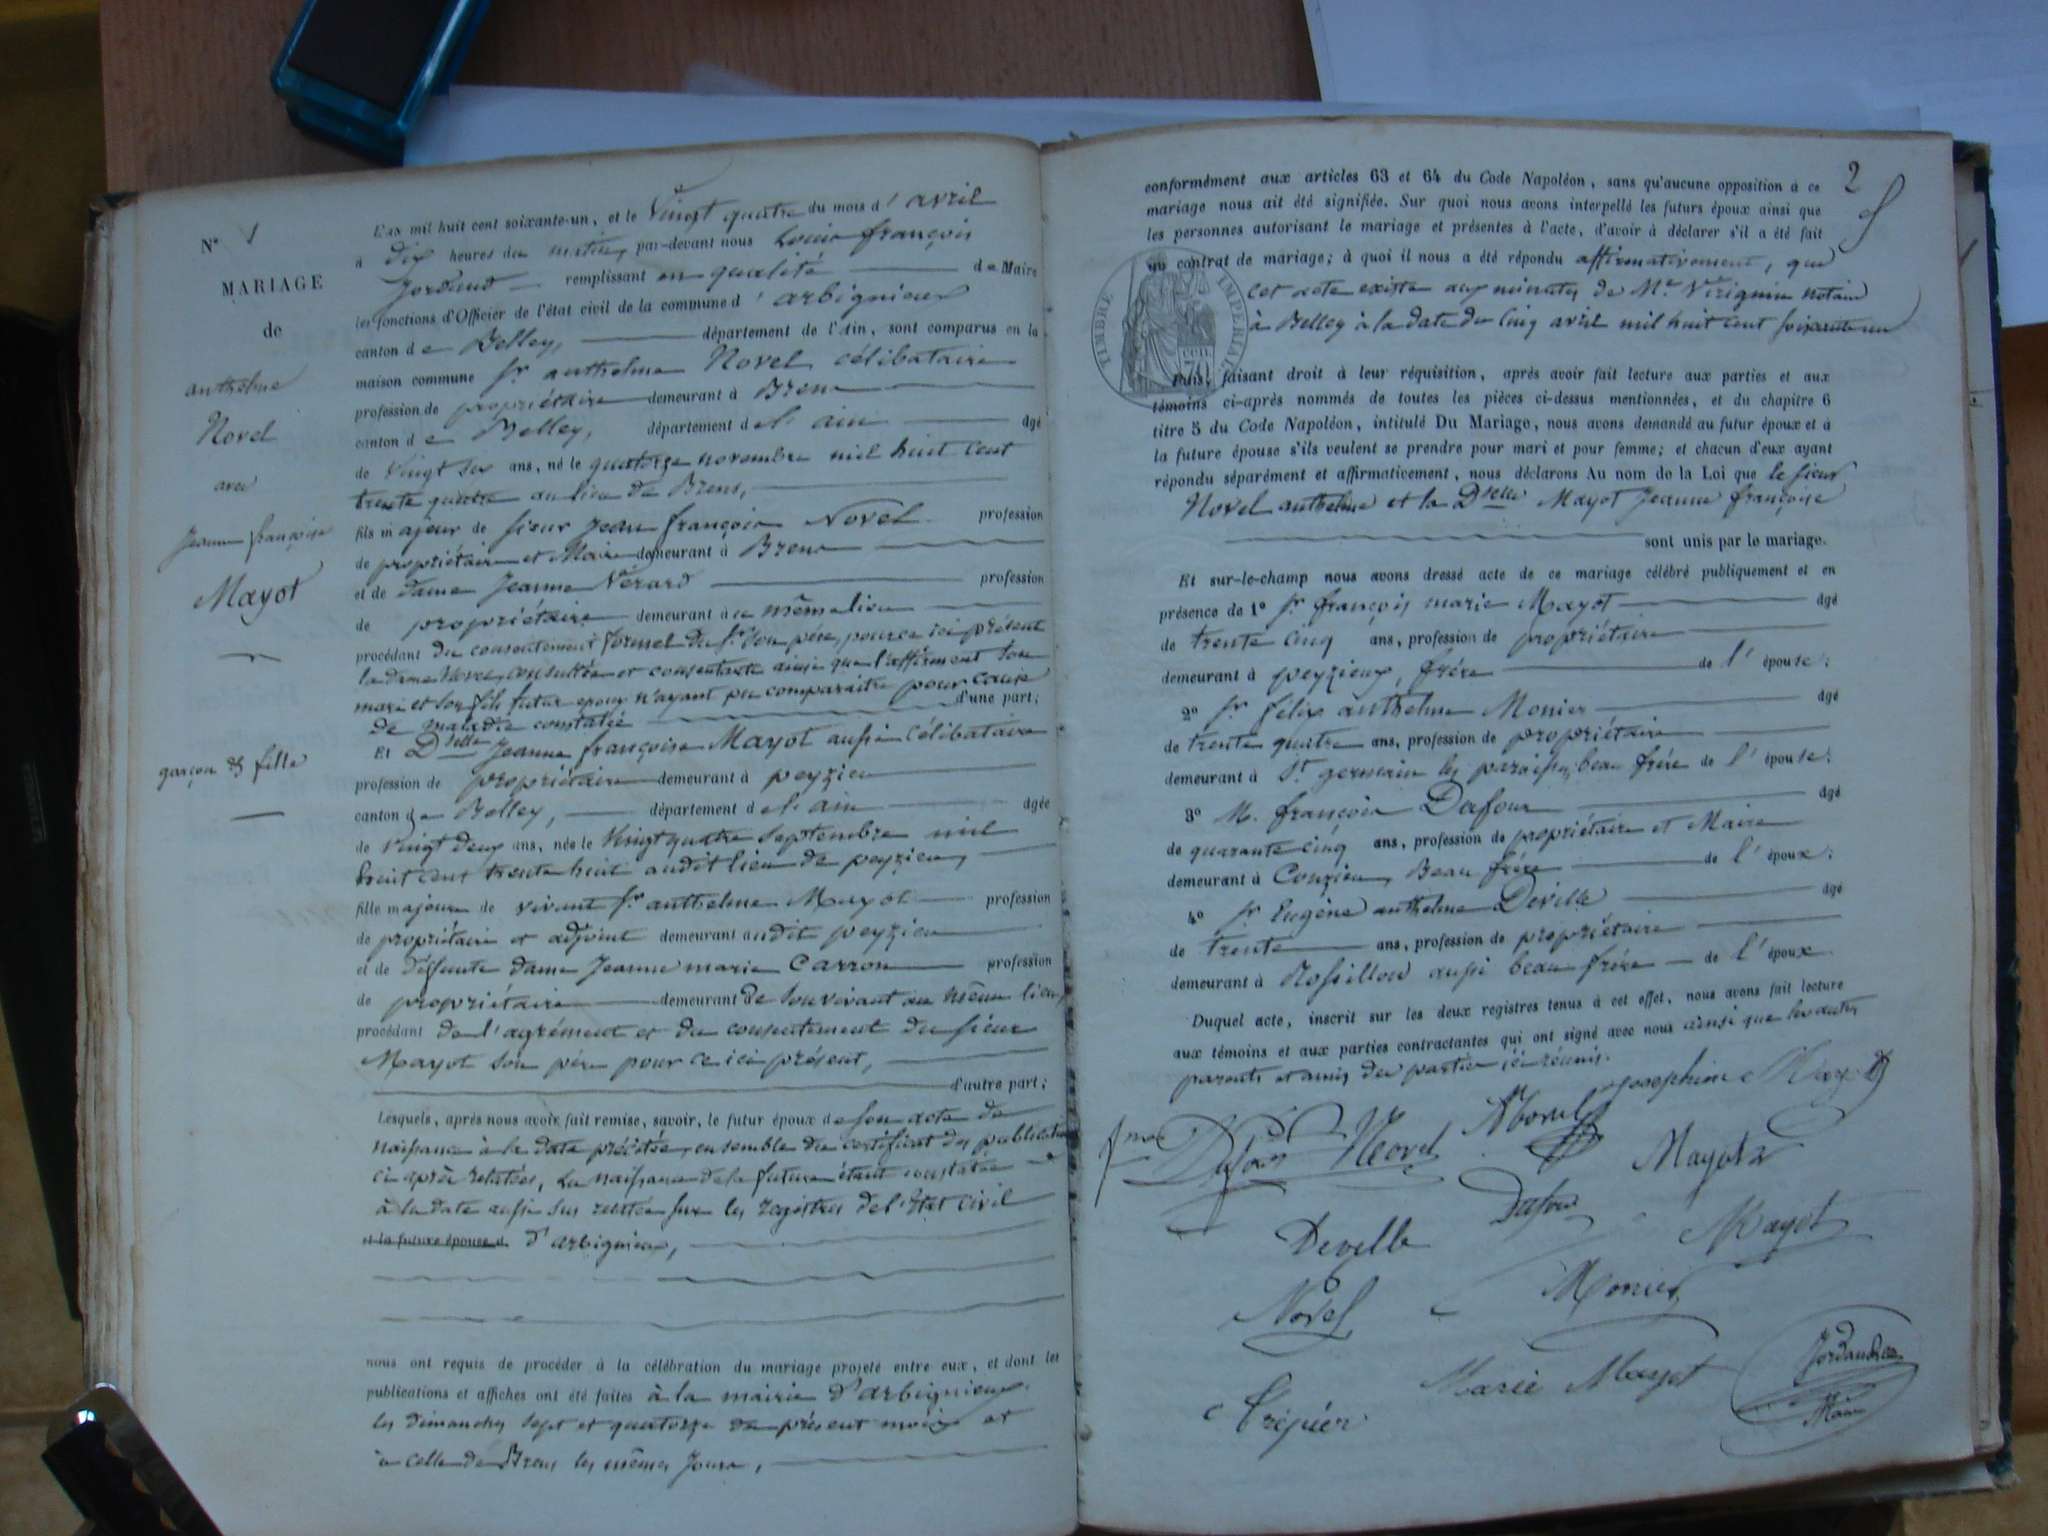 N° 1
MARIAGE
de
anthelme
Novel
avec
Jeanne françoise
Mayot
garçon & fille
L'an mil huit cent soixante-un, et le Vingt quatre du mois d'avril
à dix heures du matin, par-devant nous Louis françois
Jordand remplissant en qualité de Maire
les fonctions d'Officier de l'état civil de la commune d'arbignieux
canton de Belley, département de l'Ain, sont comparus en la
maison commune Sr anthelme Novel célibataire
profession de propriétaire demeurant à Brens
canton de Belley, département de l'ain âgé
de Vingt six ans, né le quatorze novembre mil huit cent
trente quatre au lieu de Brens,
fils majeur de sieur Jean françois Novel profession
de propriétaire et Maire demeurant à Brens
et de dame Jeanne Vérard profession
de propriétaire demeurant à ce même lieu
procédant du consentement formel du Sr son père, pour ce ici présent
la dame Novel, consultée et consentante ainsi que l'affirment son
mari et son fils futur époux n'ayant pu comparaître pour cause
de maladie constatée d'une part;
Et Dselle Jeanne françoise Mayot aussi célibataire
profession de propriétaire demeurant à peyzieu
canton de Belley, département de l'ain âgée
de Vingt deux ans, née le Vingt quatre septembre mil
huit cent trente huit audit lieu de peyzieu,
fille majeure de vivant Sr anthelme Mayot profession
de propriétaire et adjoint demeurant audit peyzieu
et de défunte dame Jeanne marie Carron profession
de propriétaire demeurant de son vivant au même lieu,
procédant de l'agrément et du consentement du sieur
Mayot son père pour ce ici présent,
d'autre part;
Lesquels, après nous avoir fait remise, savoir, le futur époux de son acte de
naissance à la date précitée, ensemble du certificat des publications
ci après relatées, la naissance de la future étant constatée
à la date aussi sus relatée sur les registres de l'Etat civil
et la future épouse d d'arbignieux,
nous ont requis de procéder à la célébration du mariage projeté entre eux, et dont les
publications et affiches ont été faites à la mairie d'arbignieux
les dimanches sept et quatorze du présent mois et
à celle de Brens les mêmes jours,
2
conformément aux articles 63 et 64 du Code Napoléon, sans qu'aucune opposition à ce
mariage nous ait été signifiée. Sur quoi nous avons interpellé les futurs époux ainsi que
les personnes autorisant le mariage et présentes à l'acte, d'avoir à déclarer s'il a été fait
un contrat de mariage; à quoi il nous a été répondu affirmativement, que
cet acte existe aux minutes de Me Virignin notaire
à Belley à la date du Cinq avril mil huit cent soixante un
TIMBRE IMPERIAL
CEN
70
Puis, faisant droit à leur réquisition, après avoir fait lecture aux parties et aux
témoins ci-après nommés de toutes les pièces ci-dessus mentionnées, et du chapitre 6
titre 5 du Code Napoléon, intitulé Du Mariage, nous avons demandé au futur époux et à
la future épouse s'ils veulent se prendre pour mari et pour femme; et chacun d'eux ayant
répondu séparément et affirmativement, nous déclarons Au nom de la Loi que le sieur
Novel anthelme et la Dselle Mayot Jeanne françoise
sont unis par le mariage.
Et sur-le-champ nous avons dressé acte de ce mariage célébré publiquement et en
présence de 1° Sr françois marie Mayot âgé
de trente cinq ans, profession de propriétaire
demeurant à peyzieux, frère de l'épouse;
2° Sr félix anthelme Monier âgé
de trente quatre ans, profession de propriétaire
demeurant à St germain les paroisses, beau frère de l'épouse;
3° M. françois Dufour âgé
de quarante cinq ans, profession de propriétaire et Maire
demeurant à Conzieu, Beau frère de l'époux;
4° Sr Eugène anthelme Deville âgé
de trente ans, profession de propriétaire
demeurant à Rossillon aussi beau frère de l'époux
Duquel acte, inscrit sur les deux registres tenus à cet effet, nous avons fait lecture
aux témoins et aux parties contractantes qui ont signé avec nous ainsi que les autres
parents et amis des parties ici réunis.
Josephine Mayot
Dufour Novel A Novel
Mayot
Dufour
Deville
Mayot
Novel
Monier
Marie Mayot
Jordand
Maire
Trépier